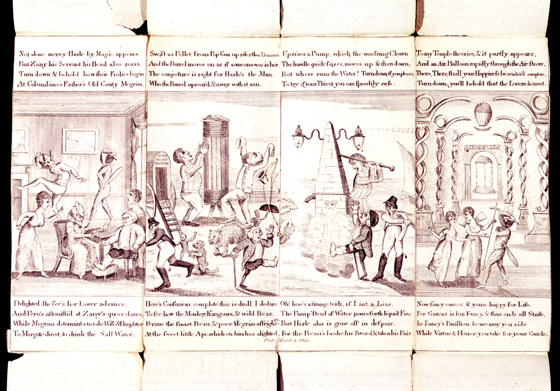 Not alone mercy Harle by Magic appears
But Zany his Servant his Head also rears.
Turn down & behold how their Frolics begin
At Columbine's Father's Old Gouty Megrim
Swift as Pellet from Pop Gun up rises this
And the Barrel moves on as if someone was in her
The conjecture is right for Harle's the Man.
Who the Barrel uprear'd, & away with it ran.
Up rises a Pump, which the wond'ring Clown
The handle quick seizes, moves up & then down,
But where runs the Water? Turn down if you please
To try if your Thirst you can speedily ease.
To my Temple she cries, & it partly appears,
And an Air Balloon rapidly through the Air steers,
There, There, shall your Happiness be
Turn down, you'll behold that the Lovers
Delighted she see's her Lover advance,
And Dru's astonish'd at Zany's queer dance,
While Megrim determin's to take Wife & Daughter
To Margate direct, to drink the Salt Water.
Here's Confusion complete this is droll I declare
To see how the Monkey, Kangaroo, & wild Bear.
Pursue the smart Beau, & poor Megrim affright
At the fierce little Ape, which on him has alighted.
Oh! here's a strange trick, if I aint a Liar.
The Pump 'stead of Water pours forth liquid Fire,
But Harle also is gone off in despair.
For the Person's broke his Sword & taken his Fair
Now fancy content & your's happy for Life.
For Content is but Fancy, & thus ends all Strife,
In Fancy's Pavilion fancy may you ride
While Virtue & Honor you take for your Guide.